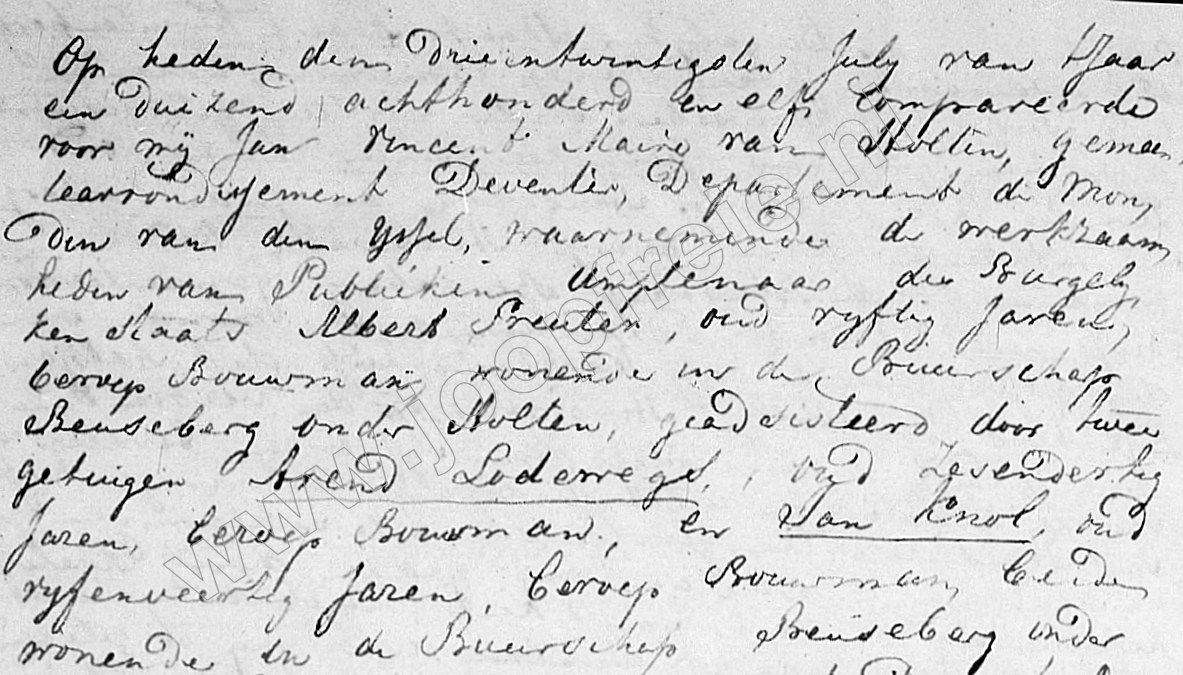 Op heden den Drieentwintigsten July van t Jaar
een Duizend achthonderd en elf Compareerde
voor mij Jan Vincent Maire van Holten, gemeen,
te arrondissement Deventer, Departement de Mon,
den van den Yssel, waarnemende de werkzaam,
heden van Publieken Amptenaar des Burgely,
ken Staats Albert Treuten, oud vyftig Jaren,
beroep Bouwman, wonende in de Buurschap
Beuseberg onder Holten, geadsisteerd door twee
getuigen Arend Loderwegs, oud zesendertig
Jaren, beroep Bouwman, en Jan Knol, oud
vyfenveertig Jaren, beroep Bouwman, beide
wonende in de Buurschap Beuseberg onder
www.joopfrele.nl